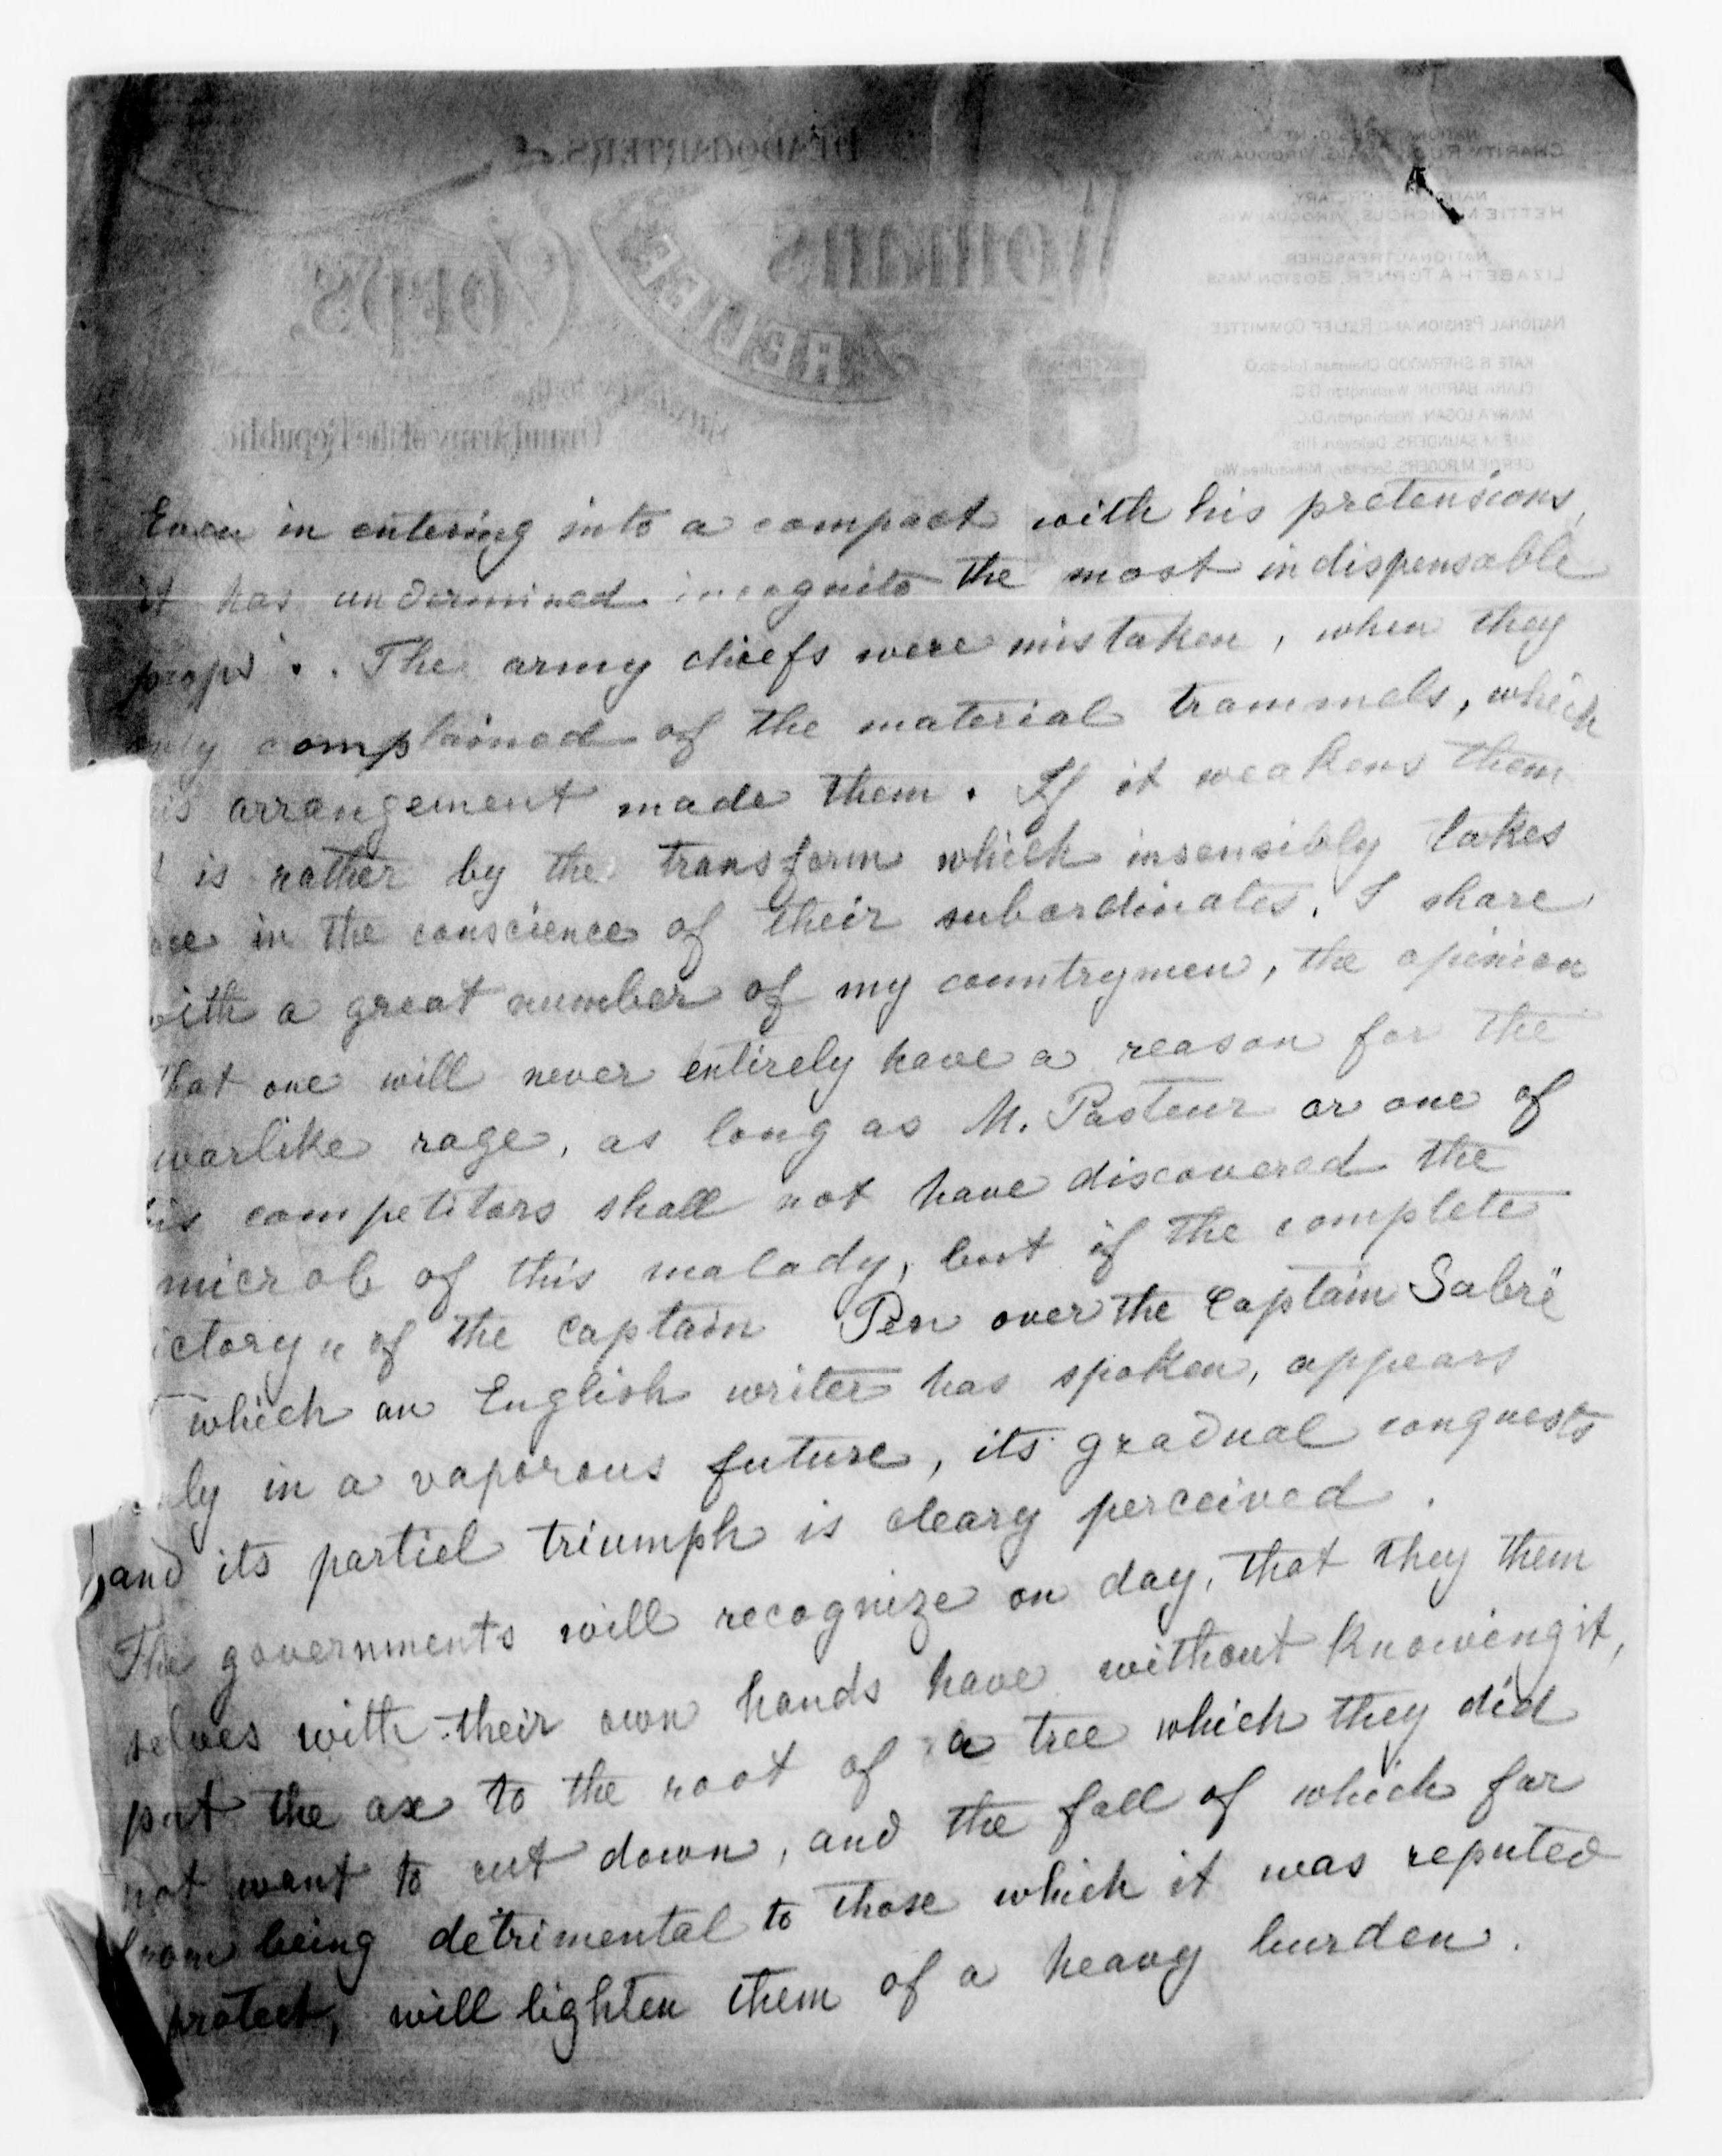 HEADQUARTERS
Woman's
RELIEF
Corps,
Auxiliary to the
Grand Army of the Republic
NATIONAL PRESIDENT
CHARITY RUSK CRAIG, VIROQUA, WIS.
NATIONAL SECRETARY
HETTIE M. NICHOLS, VIROQUA, WIS.
NATIONAL TREASURER.
LIZABETH A. TURNER, BOSTON, MASS.
NATIONAL PENSION AND RELIEF COMMITTEE
KATE B. SHERWOOD, Chairman Toledo, O.
CLARA BARTON, Washington D.C.
MARY A. LOGAN, Washington, D.C.
SUE M. SAUNDERS, Delavan, Ills.
M. ROGERS, Secretary, Milwaukee, Wis.
Even in entering into a compact with his pretensions,
it has undermined incognito the most indispensable
props. . The army chiefs were mistaken, when they
only complained of the material trammels, which
is arrangement made them. If it weakens them
is rather by the transform which insensibly takes
ce in the conscience of their subordinates. I share
with a great number of my countrymen, the opinion
that one will never entirely have a reason for the
warlike rage, as long as M. Pasteur or one of
his competitors shall not have discovered the
microb of this malady, but if the complete
ictory „ of the Captain Pen over the Captain Sabre"
which an English writer has spoken, appears
ly in a vaporous future, its gradual conquests
and its partiel triumph is cleary perceived.
The governments will recognize on day, that they them
selves with their own hands have without knowing it,
put the ax to the root of a tree which they did
not want to cut down, and the fall of which far
from being detrimental to those which it was reputed
protect, will lighten them of a heavy burden.